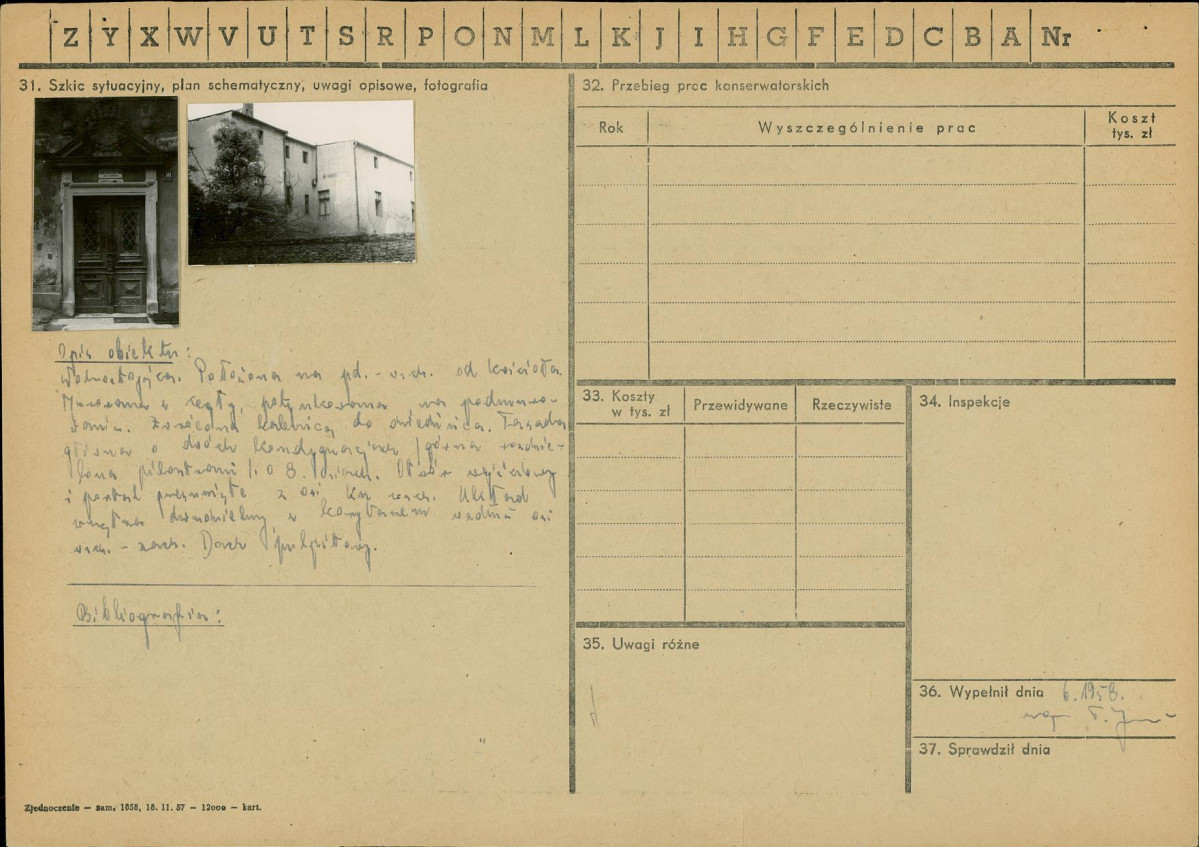 Z Y X W V U T S R P O N M L K J I H G F E D C B A Nr
31. Szkic sytuacyjny, plan schematyczny, uwagi opisowe, fotografia
10
Opis obiektu:
Wolnostojąca. Położona na pd.-wsch. od kościoła.
Murowana z cegły, potynkowana na podmuro-
waniu. Zwrócona kalenicą do dziedzińca. Fasada
główna o dwóch kondygnacjach /górna rozdzie-
lona pilastrami/ i o 8. osiach. Otwór wejściowy
i portal przesunięte z osi ku wsch. Układ
wnętrza dwudzielny z korytarzem wzdłuż osi
wsch.-zach. Dach pulpitowy.
Bibliografia:
Zjednoczenie — zam. 1658, 18. 11. 57 — 12000 — kart.
32. Przebieg prac konserwatorskich
Rok Wyszczególnienie prac Koszt tys. zł
33. Koszty w tys. zł Przewidywane Rzeczywiste
34. Inspekcje
35. Uwagi różne
36. Wypełnił dnia 6.1958.
mgr
37. Sprawdził dnia